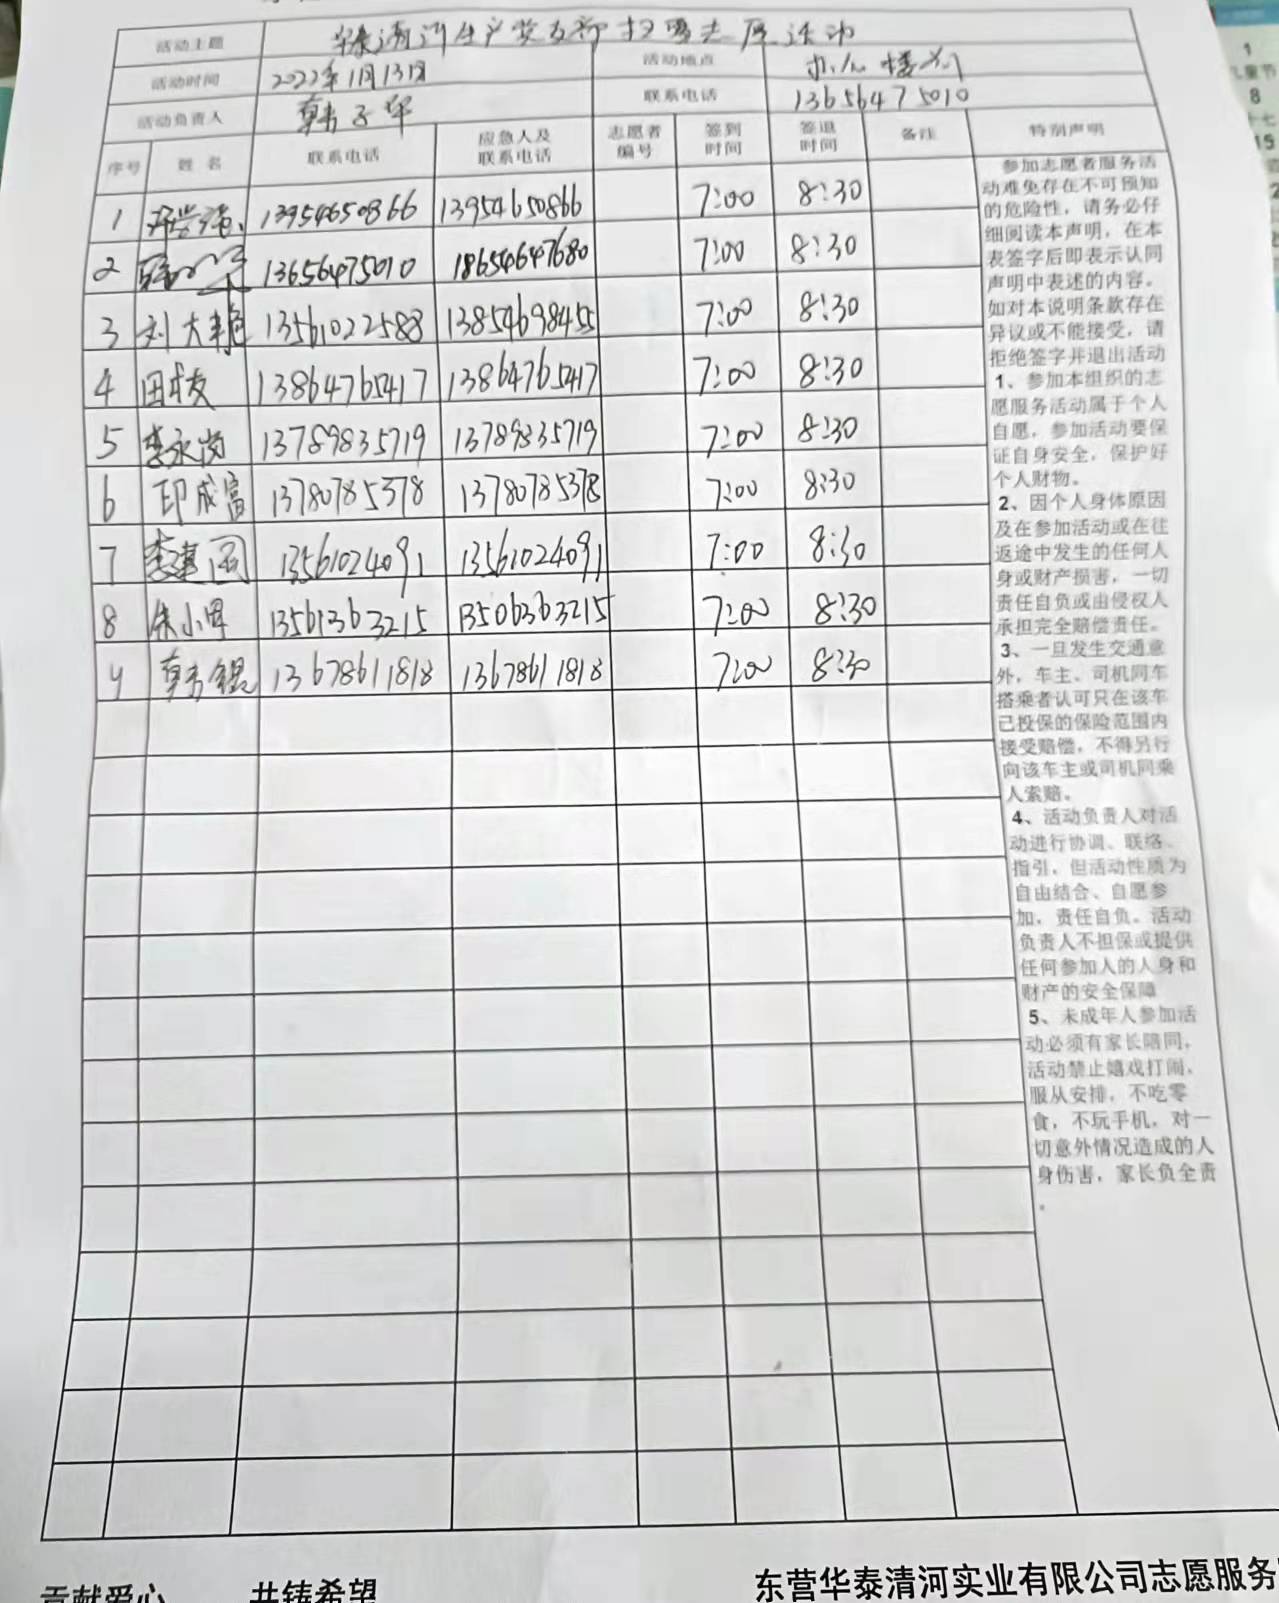 活动主题 华泰清河生产党支部扫雪志愿活动
活动时间 2022年11月13日 活动地点 办公楼前
活动负责人 韩子华 联系电话 13656475010
序号 姓名 联系电话 应急人及联系电话 志愿者编号 签到时间 签退时间 备注 特别声明
1 13954650866 13954650866 7:00 8:30
2 13656475010 18654647680 7:00 8:30
3 刘大艳 13561022588 13854698455 7:00 8:30
4 田友 13864765417 13864765417 7:00 8:30
5 李永岗 13789835719 13789835719 7:00 8:30
6 印成富 13780785378 13780785378 7:00 8:30
7 李建国 13561024091 13561024091 7:00 8:30
8 朱小军 13561363215 13506363215 7:00 8:30
9 韩锟 13678611818 13678611818 7:00 8:30
参加志愿者服务活
动难免存在不可预知
的危险性，请务必仔
细阅读本声明，在本
表签字后即表示认同
声明中表述的内容。
如对本说明条款存在
异议或不能接受，请
拒绝签字并退出活动
1、参加本组织的志
愿服务活动属于个人
自愿，参加活动要保
证自身安全，保护好
个人财物。
2、因个人身体原因
及在参加活动或在往
返途中发生的任何人
身或财产损害，一切
责任自负或由侵权人
承担完全赔偿责任。
3、一旦发生交通意
外，车主、司机同车
搭乘者认可只在该车
已投保的保险范围内
接受赔偿，不得另行
向该车主或司机同乘
人索赔。
4、活动负责人对活
动进行协调、联络、
指引，但活动性质为
自由结合、自愿参
加，责任自负。活动
负责人不担保或提供
任何参加人的人身和
财产的安全保障
5、未成年人参加活
动必须有家长陪同，
活动禁止嬉戏打闹，
服从安排，不吃零
食，不玩手机，对一
切意外情况造成的人
身伤害，家长负全责
。
贡献爱心 共铸希望 东营华泰清河实业有限公司志愿服务